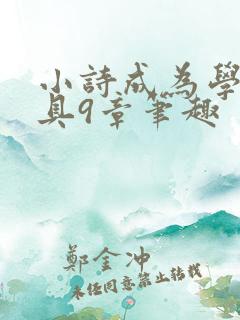 小詩成為學
具9章筆趣
鄭金沖
未經同意禁止轉載